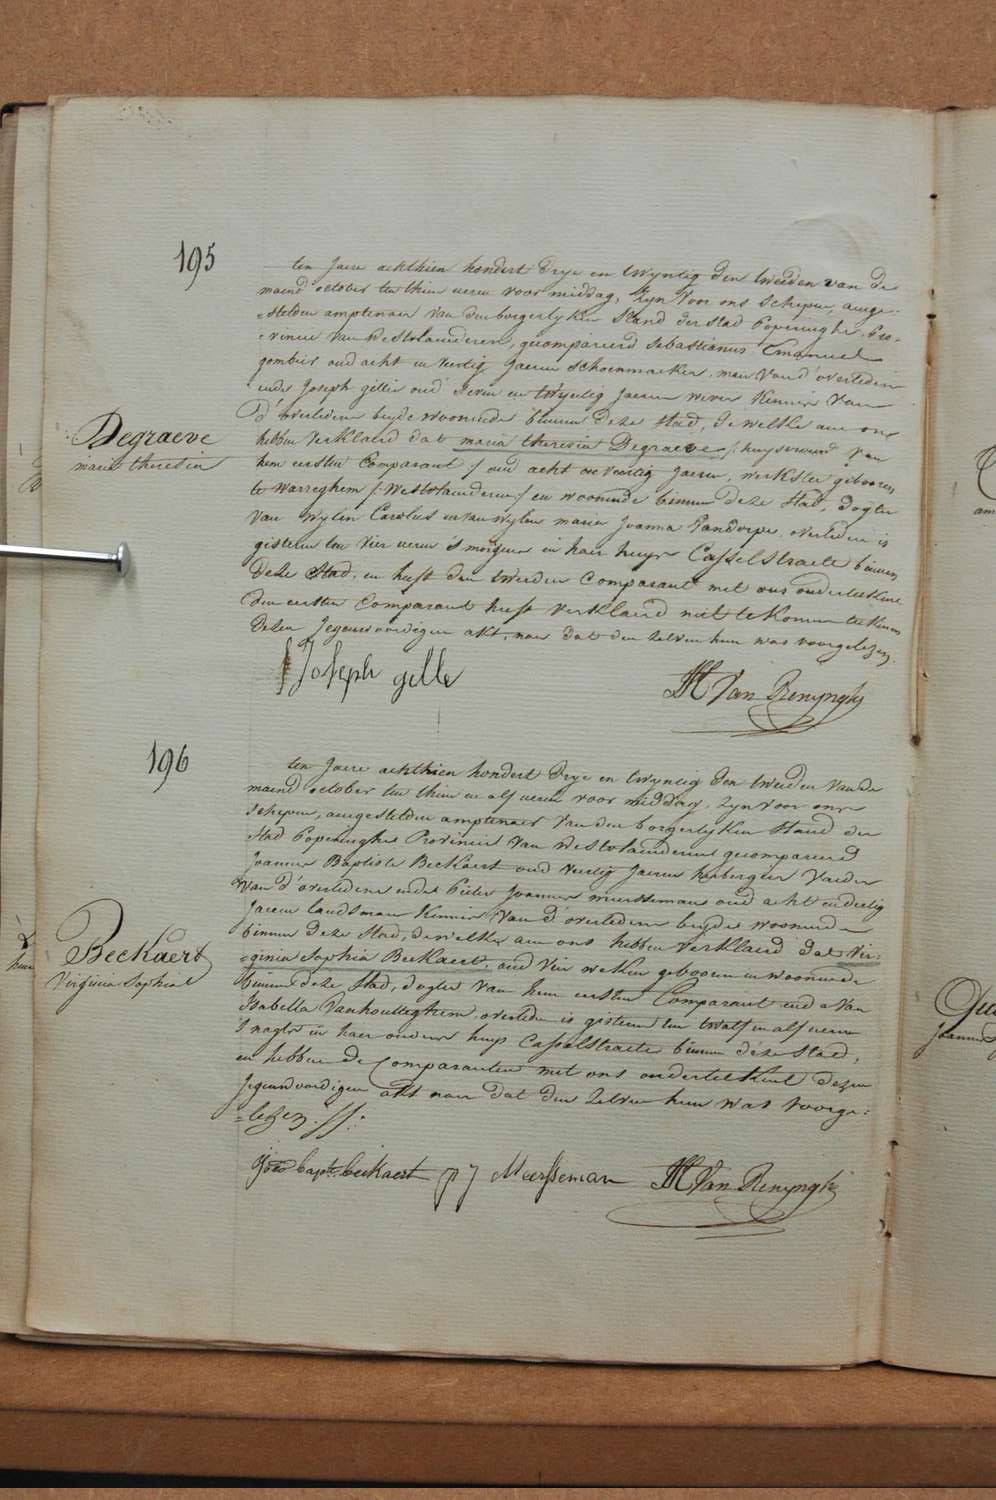 195
ten Jaere achthien hondert drye en twyntig den tweeden van de
maend october ten thien ueren voor middag, zyn voor ons schepen, ange-
=stelden amptenaer van den borgerlyken stand der stad Poperinghe, Pro-
=vincie van Westvlaenderen, gecompareerd Sebastianus Emanuel
gombeir oud acht en veertig Jaeren schoenmaeker, man van d'overledene
ende Joseph gelle oud seven en twyntig Jaeren wever kennis van
d'overledene beyde woonende binnen deze stad, dewelke aen ons
Degraeve
maria theresia
hebben verklaerd dat maria theresia Degraeve /: huysvrouw van
hem eersten Comparant :/ oud acht en veertig Jaeren, werkster geboren
te warreghem /: Westvlaenderen :/ en woonende binnen deze stad, dogter
van wylen Carolus en van wylen maria Joanna Vandorpe, overleden is
gisteren ten vier ueren 's morgens in haer huys Casselstraete binnen
deze stad, en heeft den tweeden Comparant met ons onderteekent
den eersten Comparant heeft verklaerd niet te konnen teekenen
dezen Jegenwoordigen akt, naer dat den zelven hun was voorgelezen.
Joseph gelle
Van Renynghe
196
ten Jaere achthien hondert drye en twyntig den tweeden van de
maend october ten thien en alf ueren voor middag, zyn voor ons
schepen, aengestelden amptenaer van den borgerlyken stand der
stad Poperinghe Provincie van Westvlaenderen gecompareerd
Joannes Baptiste Beckaert oud veertig Jaeren herbergier Vader
van d'overledene ende Pieter Joannes meersseman oud acht en dertig
Jaeren landsman kennis van d'overledene beyde woonende
Beckaert
Virginia Sophia
binnen deze stad, dewelke aen ons hebben verklaerd dat Vir-
=ginia Sophia Beckaert, oud vier weken geboren en woonende
binnen deze stad, dogter van hem eersten Comparant ende van
Isabella Vanhoutteghem, overleden is gisteren ten twalf en alf ueren
's nagts in haer ouders huys Casselstraete binnen deze stad,
en hebben de Comparanten met ons onderteekent dezen
Jegenwoordigen akt naer dat den zelven hun was voorge=
=lezen.
Joes bapt. beckaert
p J Meersseman
Van Renynghe